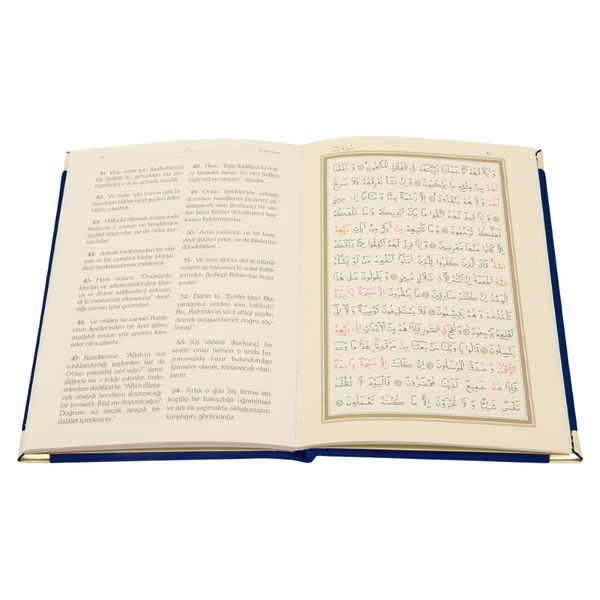 41- Yine onlar için (kudretimize)
bir delildir ki, gerçekten biz zür-
riyetlerini o dolu gemide taşıdık.
42- Ve onlar için bunun gibi bi-
necekleri (daha nice) şeyleri (vâsı-
taları) yarattık.
43- Hâlbuki dilersek onları suda
boğarız; o zaman ne kendilerine
imdâd eden olur, ne de onlar kur-
tarılırlar.
44- Ancak tarafımızdan bir rah-
met ve bir zamâna kadar (dünya-
dan) faydalandırma müstesnâ.
45- Hem onlara: "Önünüzde-
kinden ve arkanızdakinden (dün-
ya ve âhiret azâbından) sakının;
tâ ki merhamet olunasınız" denil-
diği zaman (yüz çevirirler).
46- Ve onlara ne zaman Rable-
rinin âyetlerinden bir âyet gelse,
mutlakā ondan yüz çevirici kim-
seler olmuşlardır.
47- Kendilerine: "Allah'ın sizi
rızıklandırdığı şeylerden (siz de
O'nun yolunda) sarf edin!" denil-
diğinde ise o inkâr edenler, îmân
edenlere dediler ki: "Allah dileye-
cek olsaydı kendisini doyuracağı
bir kimseyi, (biz) mi doyuracağız?
Doğrusu siz ancak apaçık bir
dalâlet içindesiniz."
48- Hem, "Eğer (iddiânızda) doğ-
ru kimseler iseniz, bu vaad (edilen
kıyâmet) ne zaman?" diyorlar.
49- Onlar, birbirleriyle çekişip
dururlarken (kendilerini) ansızın ya-
kalayacak olan (korkunç) bir ses-
den (sûra birinci üfürülüşten) baş-
kasını beklemiyorlar.
50- Artık (onlar) ne bir tavsi-
yeye güçleri yeter, ne de âilelerine
dönebilirler!
51- Ve sûra (ikinci def'a) üfürül-
müştür de bakarsın ki onlar kabir-
lerinden (kalkıp) Rablerine koşu-
yorlar.
52- Derler ki: "Eyvâh bize! Bizi
yattığımız yerden kim kaldırdı?
Bu, Rahmân'ın va'd ettiği şeydir;
demek peygamberler doğru söyle-
miş!"
53- (O) sâdece (korkunç) bir
sestir; onlar hemen o anda hu-
zûrumuzda hazır bulundurulan
kimseler olarak, toplanacak olan-
lardır.
54- Artık o gün hiç kimse (en
küçük) bir haksızlığa uğratılmaz
ve ancak yapmakta olduğunuzun
karşılığını görürsünüz.
وَاٰيَةٌ لَهُمْ اَنَّا حَمَلْنَا ذُرِّيَّتَهُمْ فِي الْفُلْكِ الْمَشْحُونِ ۞ وَخَلَقْنَا
لَهُمْ مِنْ مِثْلِهِ مَا يَرْكَبُونَ ۞ وَاِنْ نَشَأْ نُغْرِقْهُمْ فَلَا صَرِيخَ
لَهُمْ وَلَا هُمْ يُنْقَذُونَ ۞ اِلَّا رَحْمَةً مِنَّا وَمَتَاعًا اِلٰى حِينٍ
۞ وَاِذَا قِيلَ لَهُمُ اتَّقُوا مَا بَيْنَ اَيْدِيكُمْ وَمَا خَلْفَكُمْ
لَعَلَّكُمْ تُرْحَمُونَ ۞ وَمَا تَأْتِيهِمْ مِنْ اٰيَةٍ مِنْ اٰيَاتِ رَبِّهِمْ
اِلَّا كَانُوا عَنْهَا مُعْرِضِينَ ۞ وَاِذَا قِيلَ لَهُمْ اَنْفِقُوا مِمَّا رَزَقَكُمُ
اللّٰهُ قَالَ الَّذِينَ كَفَرُوا لِلَّذِينَ اٰمَنُوا اَنُطْعِمُ مَنْ لَوْ يَشَاءُ
اللّٰهُ اَطْعَمَهُ اِنْ اَنْتُمْ اِلَّا فِي ضَلَالٍ مُبِينٍ ۞ وَيَقُولُونَ مَتٰى هٰذَا
الْوَعْدُ اِنْ كُنْتُمْ صَادِقِينَ ۞ مَا يَنْظُرُونَ اِلَّا صَيْحَةً وَاحِدَةً
تَأْخُذُهُمْ وَهُمْ يَخِصِّمُونَ ۞ فَلَا يَسْتَطِيعُونَ تَوْصِيَةً وَلَا اِلٰى
اَهْلِهِمْ يَرْجِعُونَ ۞ وَنُفِخَ فِي الصُّورِ فَاِذَا هُمْ مِنَ الْاَجْدَاثِ اِلٰى رَبِّهِمْ
يَنْسِلُونَ ۞ قَالُوا يَا وَيْلَنَا مَنْ بَعَثَنَا مِنْ مَرْقَدِنَا هٰذَا مَا وَعَدَ
الرَّحْمٰنُ وَصَدَقَ الْمُرْسَلُونَ ۞ اِنْ كَانَتْ اِلَّا صَيْحَةً وَاحِدَةً
فَاِذَا هُمْ جَمِيعٌ لَدَيْنَا مُحْضَرُونَ ۞ فَالْيَوْمَ لَا تُظْلَمُ
نَفْسٌ شَيْئًا وَلَا تُجْزَوْنَ اِلَّا مَا كُنْتُمْ تَعْمَلُونَ ۞